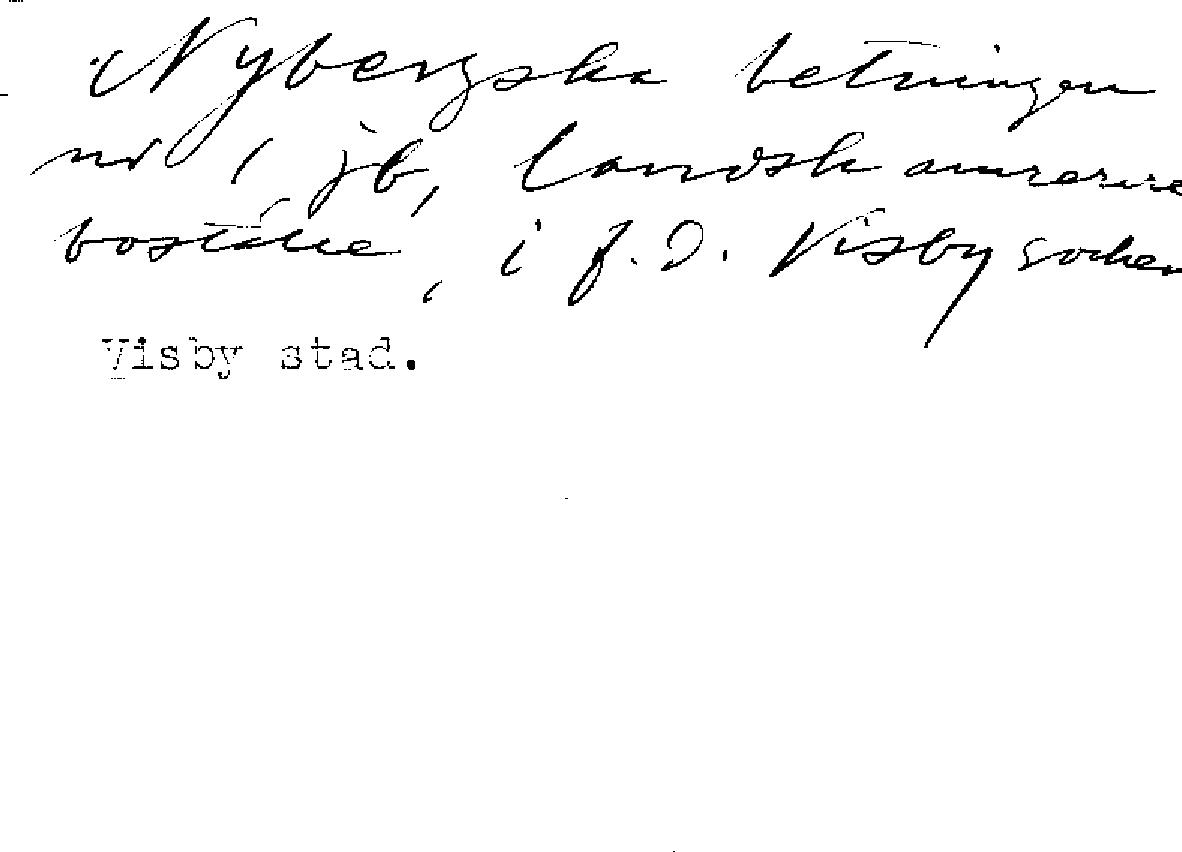 Nybergska betningen
nr 1 jb, landskamrerare
boställe, i f.d. Visby socken
Visby stad.